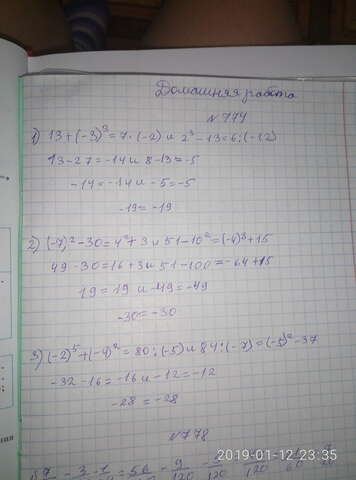 Домашняя работа
№ 774
1) 13+(-3)³=7·(-2) и 2³-13=6:(-12)
13-27=-14 и 8-13=-5
-14=-14 и -5=-5
-19=-19
2) (-7)²-30=4²+3 и 51-10²=(-4)³+15
49-30=16+3 и 51-100=-64+15
19=19 и -49=-49
-30=-30
3) (-2)⁵+(-4)²=80:(-5) и 84:(-7)=(-5)²-37
-32-16=-16 и -12=-12
-28=-28
№ 778
2019-01-12 23:35